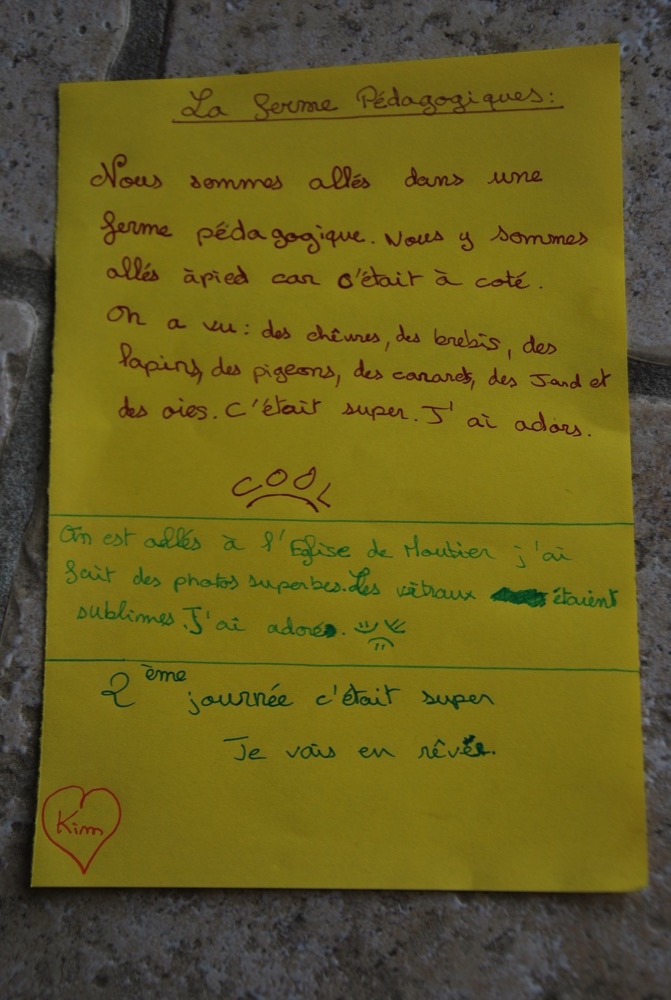 La ferme Pédagogiques:
Nous sommes allés dans une
ferme pédagogique. Nous y sommes
allés àpied car c'était à coté.
On a vu: des chêvres, des brebis, des
lapins, des pigeons, des canards, des Jard et
des oies. C'était super. J'ai adors.
COOL
On est allés à l'Eglise de Moutier j'ai
fait des photos superbes. Les vitraux étaient
sublimes. J'ai adorés.
2ème journée c'était super
Je vais en rêver.
Kim